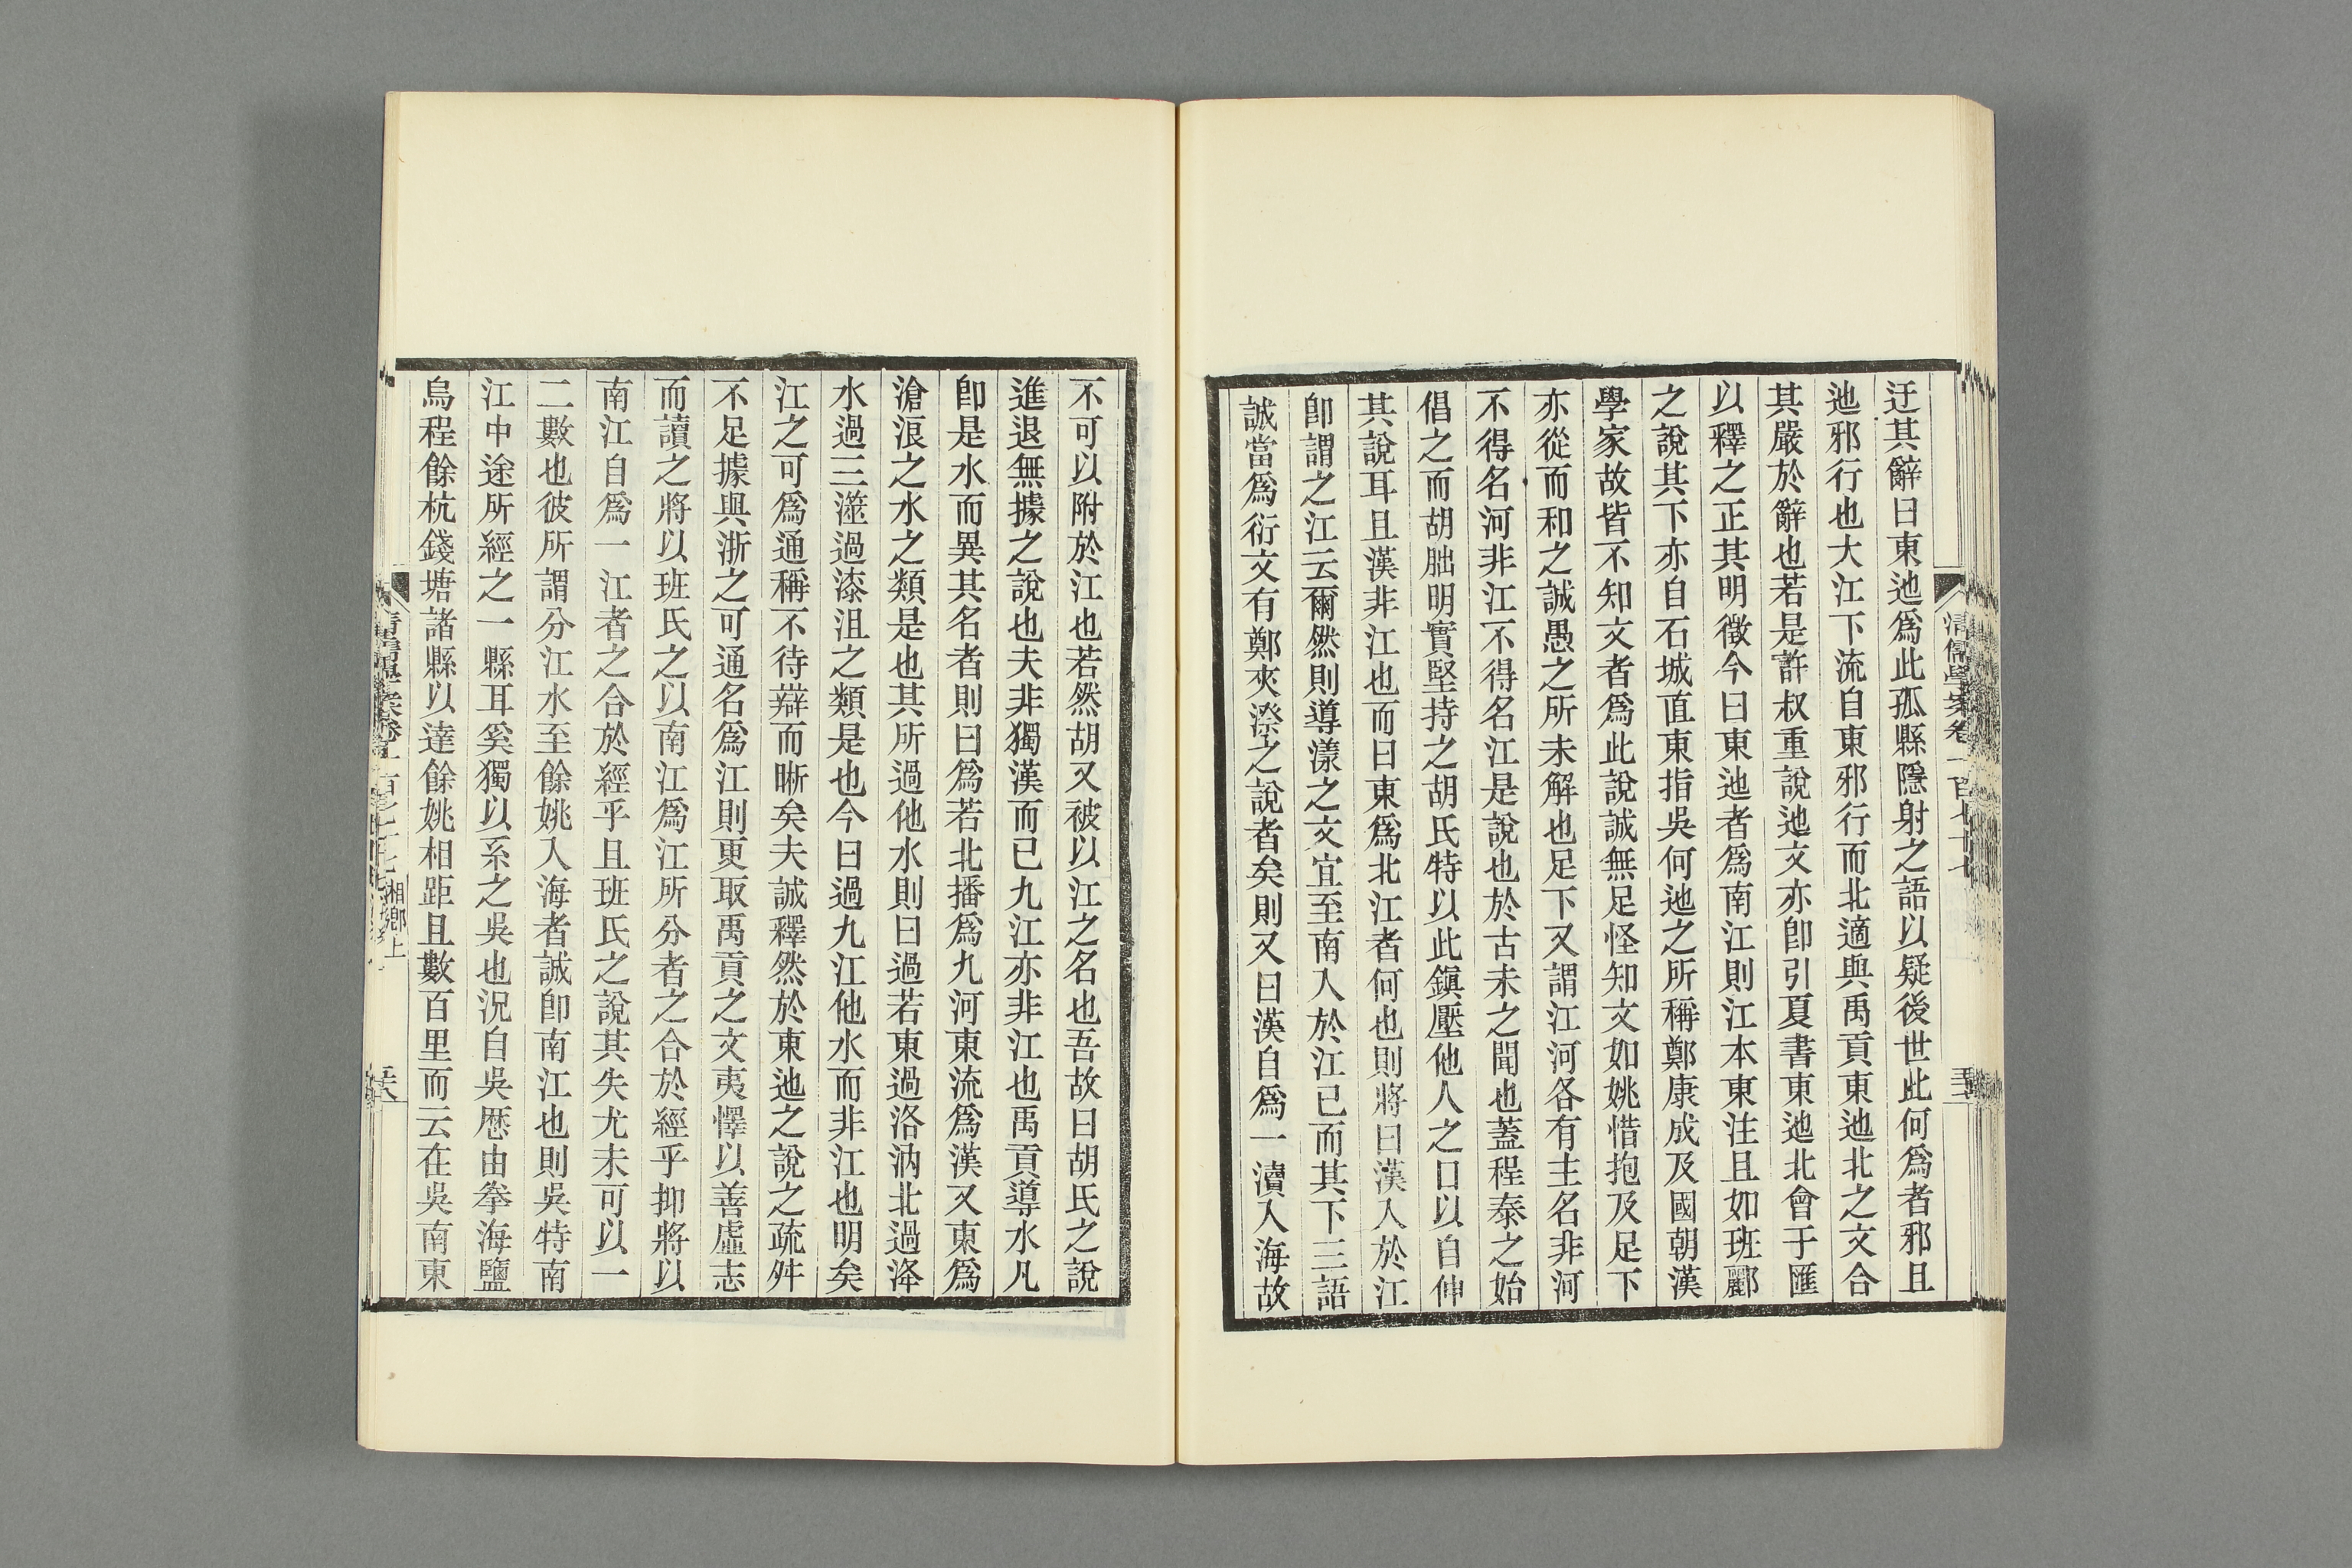 清儒學案卷一百七十七
迂其辭曰東迆爲此孤縣隱射之語以疑後世此何爲者邪且
迆邪行也大江下流自東邪行而北適與禹貢東迆北之文合
其嚴於辭也若是許叔重說迆文亦卽引夏書東迆北會于匯
以釋之正其明徵今曰東迆者爲南江則江本東注且如班酈
之說其下亦自石城直東指吳何迆之所稱鄭康成及國朝漢
學家故皆不知文者爲此說誠無足怪知文如姚惜抱及足下
亦從而和之誠愚之所未解也足下又謂江河各有主名非河
不得名河非江不得名江是說也於古未之聞也蓋程泰之始
倡之而胡朏明實堅持之胡氏特以此鎭壓他人之口以自伸
其說耳且漢非江也而曰東爲北江者何也則將曰漢入於江
卽謂之江云爾然則導漾之文宜至南入於江已而其下三語
誠當爲衍文有鄭夾漈之說者矣則又曰漢自爲一瀆入海故
不可以附於江也若然胡又被以江之名也吾故曰胡氏之說
進退無據之說也夫非獨漢而已九江亦非江也禹貢導水凡
卽是水而異其名者則曰爲若北播爲九河東流爲漢又東爲
滄浪之水之類是也其所過他水則曰過若東過洛汭北過洚
水過三澨過漆沮之類是也今曰過九江他水而非江也明矣
江之可爲通稱不待辯而晰矣夫誠釋然於東迆之說之疏舛
不足據與浙之可通名爲江則更取禹貢之文夷懌以善虛志
而讀之將以班氏之以南江爲江所分者之合於經乎抑將以
南江自爲一江者之合於經乎且班氏之說其失尤未可以一
二數也彼所謂分江水至餘姚入海者誠卽南江也則吳特南
江中途所經之一縣耳奚獨以系之吳也況自吳歷由拳海鹽
烏程餘杭錢塘諸縣以達餘姚相距且數百里而云在吳南東
湘鄉上